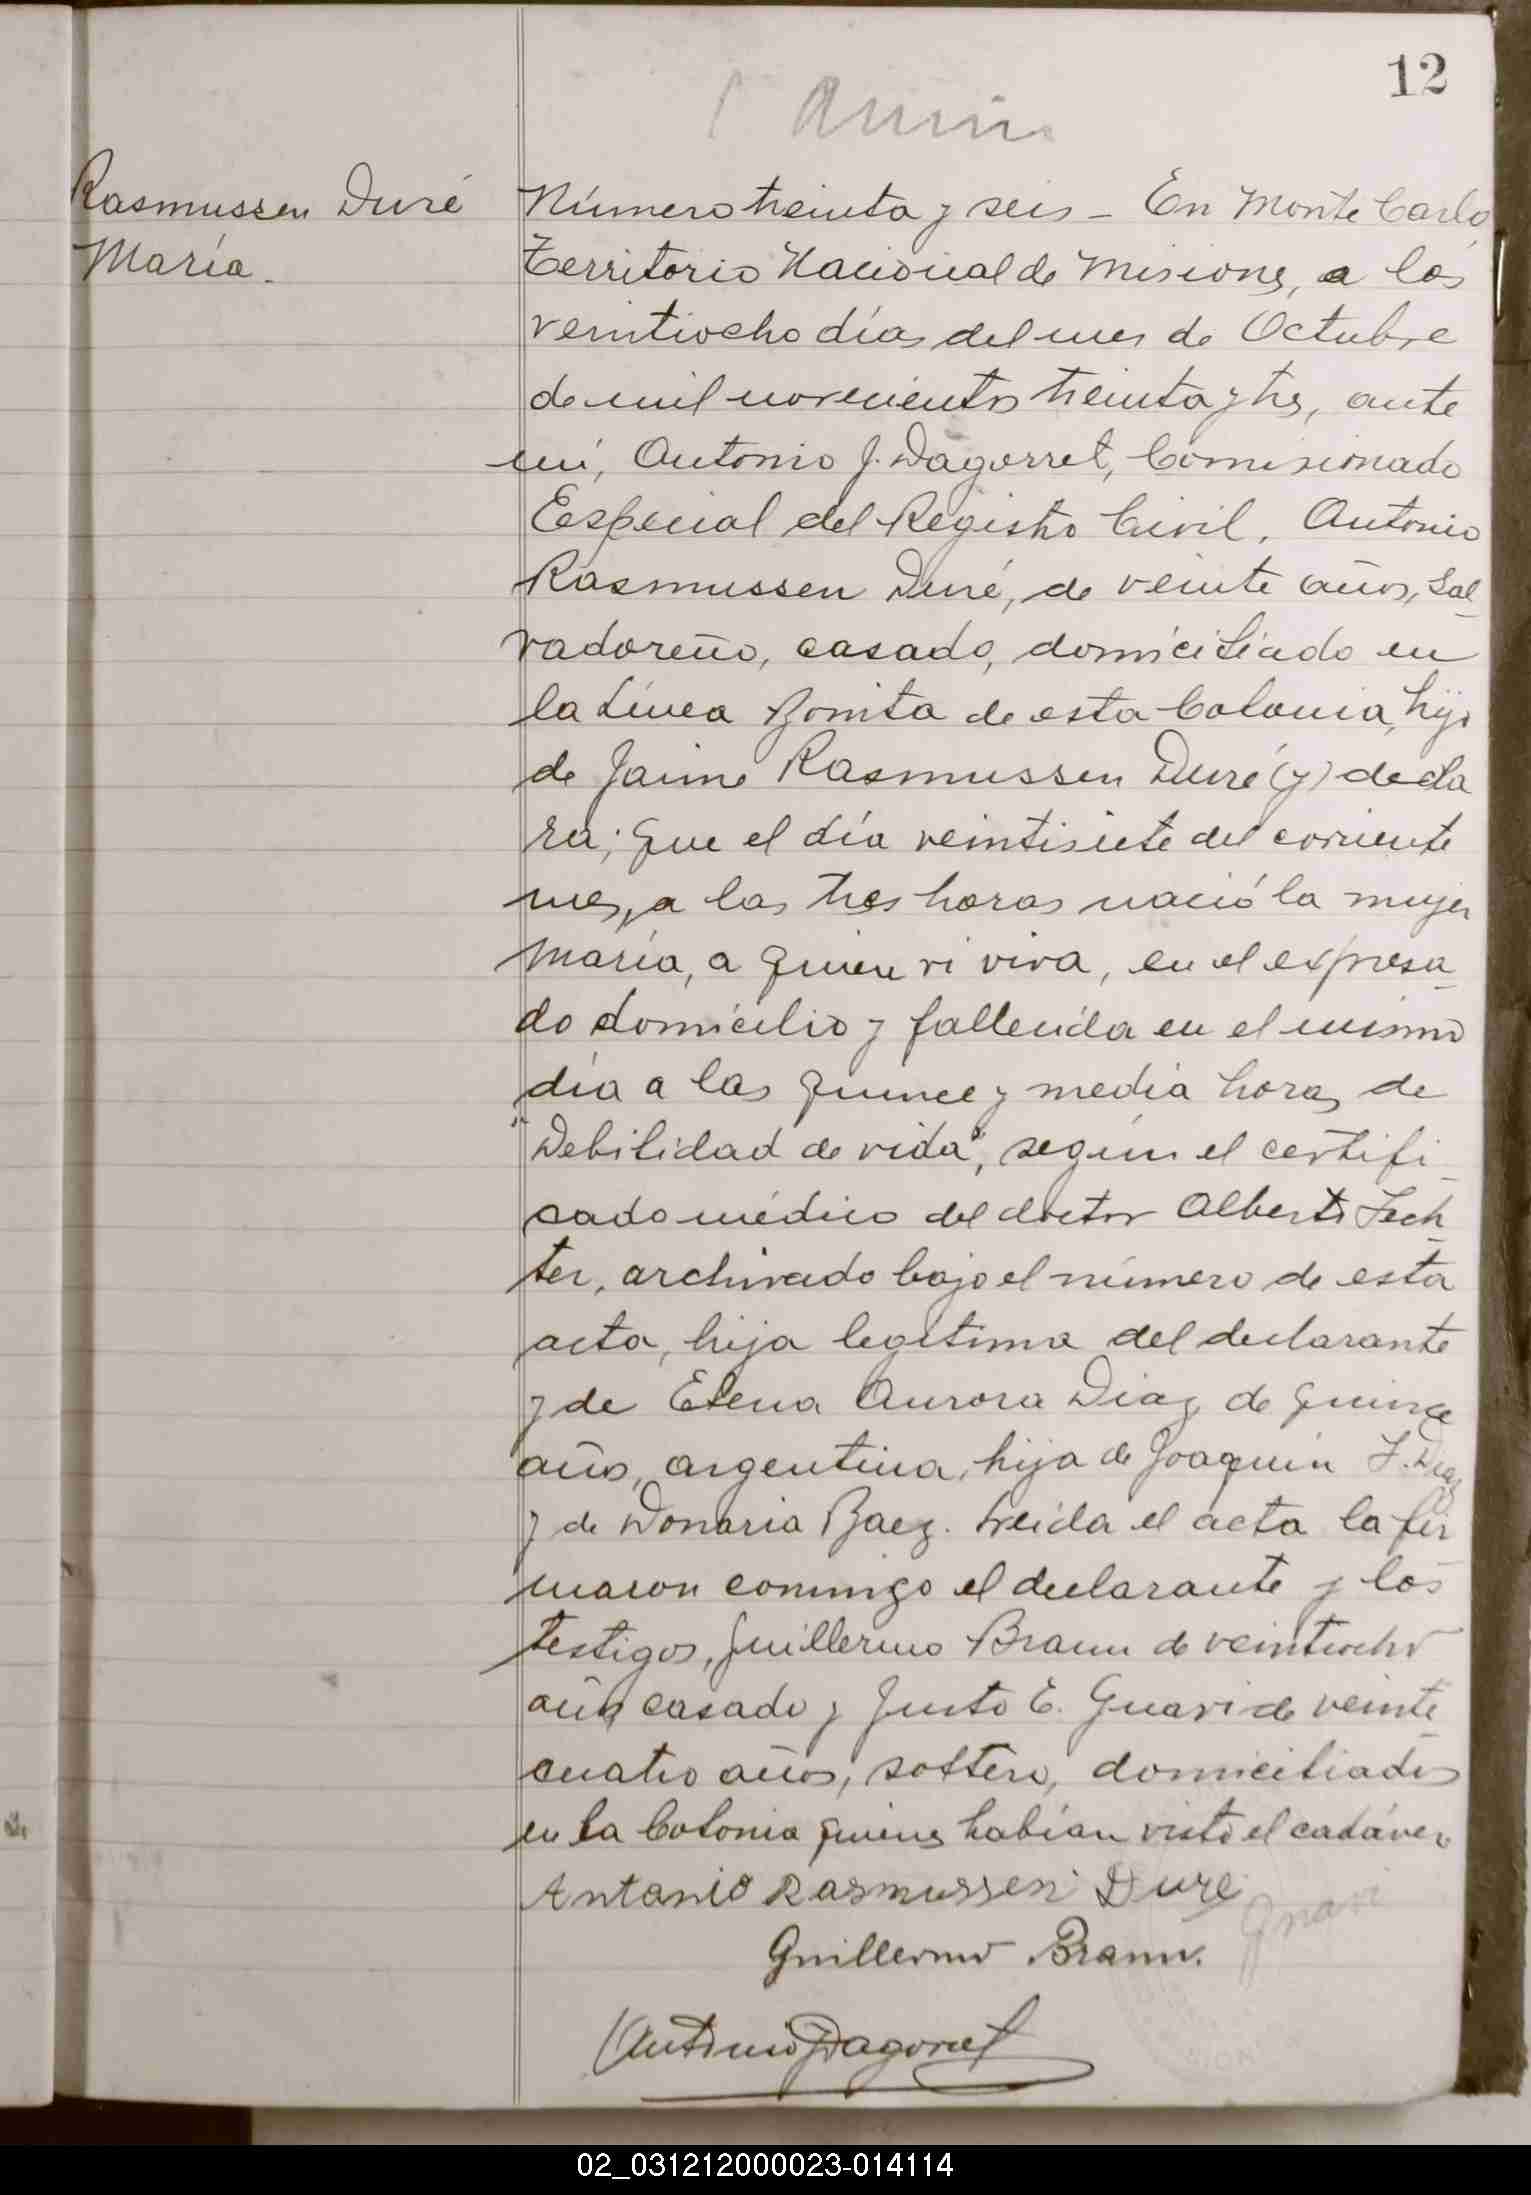 12
Rasmussen Duré
María.
Número treinta y seis - En Monte Carlo,
Territorio Nacional de Misiones, a los
veintiocho días del mes de Octubre
de mil novecientos treinta y tres, ante
mí, Antonio J. Dagorret, Comisionado
Especial del Registro Civil, Antonio
Rasmussen Duré, de veinte años, Sal-
vadoreño, casado, domiciliado en
la Línea Bonita de esta Colonia, hijo
de Jaime Rasmussen Duré (y) decla
ra; que el día veintisiete del corriente
mes, a las tres horas nació la mujer
María, a quien vi viva, en el expresa-
do domicilio y fallecida en el mismo
día a las quince y media horas de
"Debilidad de vida", según el certifi-
cado médico del doctor Alberto Lech-
ter, archivado bajo el número de esta
acta, hija legítima del declarante
y de Elena Aurora Diaz de quince
años, argentina, hija de Joaquín F. Diaz
y de Donaria Baez. Leida el acta la fir
maron conmigo el declarante y los
testigos, Guillermo Braun de veintiocho
años casado y Justo E. Guari de veinte
cuatro años, soltero, domiciliados
en la Colonia quienes habían visto el cadáver.
Antonio Rasmussen Duré
Guari
Guillermo Braun.
Antonio J Dagorret
02_031212000023-014114